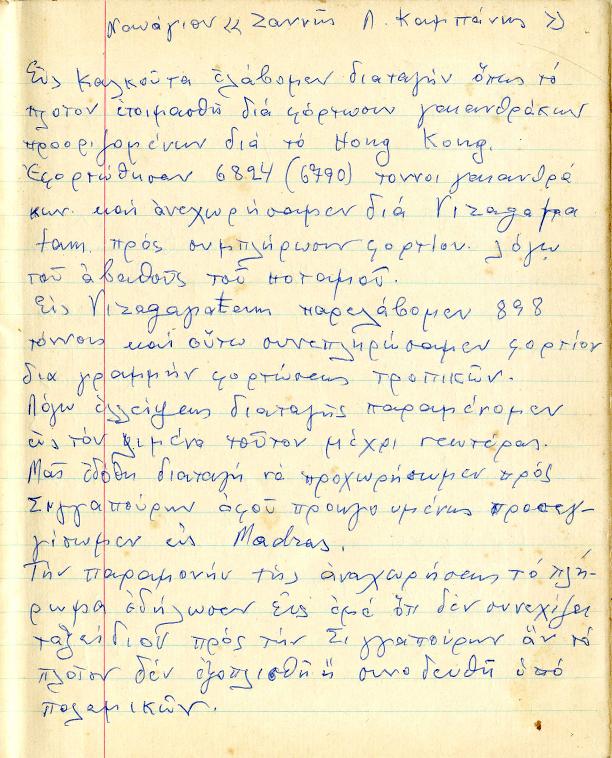 Ναυάγιον << Ζαννῆς Λ. Καμπάνης >>
Εἰς Καλκοῦτα ἐλάβομεν διαταγήν ὅπως τό
πλοῖον ἑτοιμασθῆ διά φόρτωσιν γαιανθράκων
προοριζομένων διά τό Hong Kong.
Ἐφορτώθησαν 6824 (6790) τόννοι γαιανθρά
κων καί ἀνεχωρήσαμεν διά Vizagapa
tam πρός συμπλήρωσιν φορτίου λόγω
τοῦ ἀβαθοῦς τοῦ ποταμοῦ.
Εἰς Vizagapatam παρελάβομεν 898
τόννους καί οὕτω συνεπληρώσαμεν φορτίον
δια γραμμήν φορτώσεως τροπικῶν.
Λόγω ἐλλείψεως διαταγῆς παραμένομεν
εἰς τόν λιμένα τοῦτον μέχρι νεωτέρας.
Μᾶς ἐδόθη διαταγή νά προχωρήσωμεν πρός
Σιγγαπούρην ἀφοῦ προηγουμένως προσεγ-
γίσωμεν εἰς Madras.
Τήν παραμονήν τῆς ἀναχωρήσεως τό πλή-
ρωμα ἐδήλωσεν εἰς ἐμέ ὅτι δέν συνεχίζει
ταξείδιον πρός τήν Σιγγαπούρην ἄν τό
πλοῖον δέν ἐξοπλισθῆ ἤ συνοδευθῆ ὑπό
πολεμικῶν.